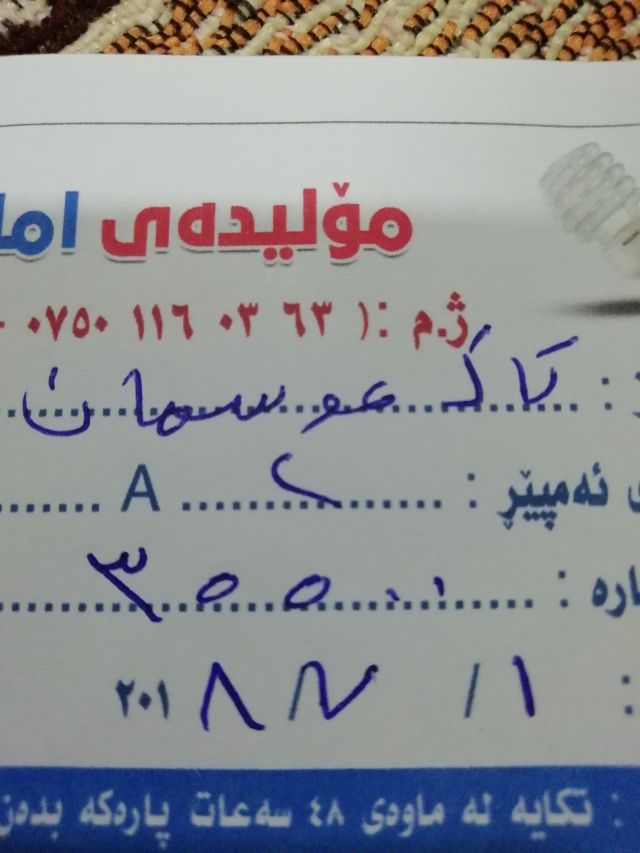 مۆلیدەی اما
ژ.م :( ٦٣ ٠٣ ١١٦ ٠٧٥٠
: کاک عوسمان
ی ئەمپێر : A
ارە : ٣٥٥٠٠
: ١ / ٧ / ٢٠١٨
: تکایە لە ماوەی ٤٨ سەعات پارەکە بدەن